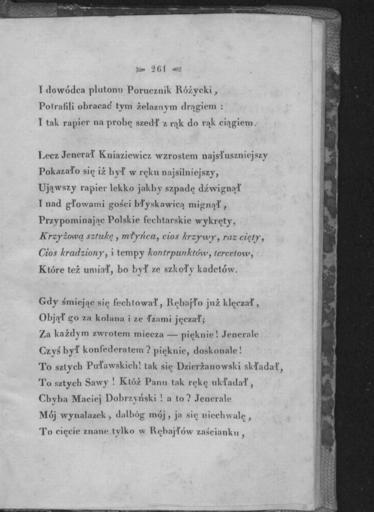 261
I dowódca plutonu Porucznik Różycki,
Potrafili obracać tym żelaznym drągiem :
I tak rapier na probę szedł z rąk do rąk ciągiem.
Lecz Jenerał Kniaziewicz wzrostem najsłuszniejszy
Pokazało się iż był w ręku najsilniejszy,
Ująwszy rapier lekko jakby szpadę dźwignął
I nad głowami gości błyskawicą mignął,
Przypominając Polskie fechtarskie wykręty,
Krzyżową sztukę, młyńca, cios krzywy, raz cięty,
Cios kradziony, i tempy kontrpunktów, tercetow,
Które też umiał, bo był ze szkoły kadetów.
Gdy śmiejąc się fechtował, Rębajło już klęczał,
Objął go za kolana i ze łzami jęczał;
Za każdym zwrotem miecza — pięknie! Jenerale
Czyś był konfederatem? pięknie, doskonale!
To sztych Puławskich! tak się Dzierżanowski składał,
To sztych Sawy ! Któż Panu tak rękę układał,
Chyba Maciej Dobrzyński ! a to ? Jenerale
Mój wynalazek, dalbóg mój, ja się niechwalę,
To cięcie znane tylko w Rębajłów zaścianku,